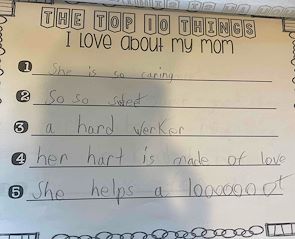 THE TOP 10 THINGS
I LOVE ABOUT MY MOM
1 She is so caring
2 So so sweet
3 a hard werker
4 her hart is made of love
5 She helps a 1000000 ot